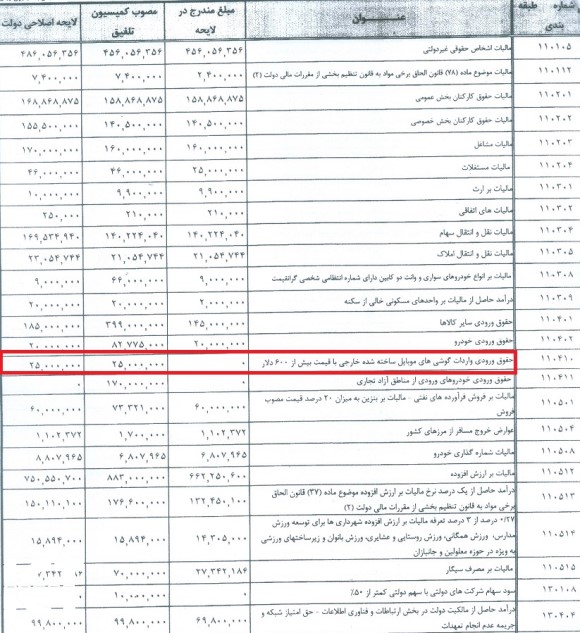 شماره طبقه بندی | عنـــوان | مبلغ مندرج در لایحه | مصوب کمیسیون تلفیق | لایحه اصلاحی دولت
۱۱۰۱۰۵ | مالیات اشخاص حقوقی غیردولتی | ۴۵۶,۰۵۶,۳۵۶ | ۴۵۶,۰۵۶,۳۵۶ | ۴۸۶,۰۵۶,۳۵۶
۱۱۰۱۱۲ | مالیات موضوع ماده (۷۸) قانون الحاق برخی مواد به قانون تنظیم بخشی از مقررات مالی دولت (۲) | ۲,۴۰۰,۰۰۰ | ۷,۴۰۰,۰۰۰ | ۷,۴۰۰,۰۰۰
۱۱۰۲۰۱ | مالیات حقوق کارکنان بخش عمومی | ۱۵۸,۸۶۸,۸۷۵ | ۱۵۸,۸۶۸,۸۷۵ | ۱۶۸,۸۶۸,۸۷۵
۱۱۰۲۰۲ | مالیات حقوق کارکنان بخش خصوصی | ۱۴۰,۵۰۰,۰۰۰ | ۱۴۰,۵۰۰,۰۰۰ | ۱۵۵,۵۰۰,۰۰۰
۱۱۰۲۰۳ | مالیات مشاغل | ۱۶۰,۰۰۰,۰۰۰ | ۱۶۰,۰۰۰,۰۰۰ | ۱۷۰,۰۰۰,۰۰۰
۱۱۰۲۰۴ | مالیات مستغلات | ۲۵,۰۰۰,۰۰۰ | ۴۶,۰۰۰,۰۰۰ | ۴۶,۰۰۰,۰۰۰
۱۱۰۳۰۱ | مالیات بر ارث | ۹,۹۰۰,۰۰۰ | ۹,۹۰۰,۰۰۰ | ۱۰,۰۰۰,۰۰۰
۱۱۰۳۰۲ | مالیات های اتفاقی | ۲۱۰,۰۰۰ | ۲۱۰,۰۰۰ | ۲۵۰,۰۰۰
۱۱۰۳۰۴ | مالیات نقل و انتقال سهام | ۱۴۰,۲۲۴,۰۴۰ | ۱۴۰,۲۲۴,۰۴۰ | ۱۶۹,۵۳۴,۹۴۰
۱۱۰۳۰۵ | مالیات نقل و انتقال املاک | ۲۱,۰۵۴,۷۴۴ | ۲۱,۰۵۴,۷۴۴ | ۲۳,۰۵۴,۷۴۴
۱۱۰۳۰۸ | مالیات بر انواع خودروهای سواری و وانت دو کابین دارای شماره انتظامی شخصی گرانقیمت | ۹,۰۰۰,۰۰۰ | ۶۶,۰۰۰,۰۰۰ | ۹,۰۰۰,۰۰۰
۱۱۰۳۰۹ | درآمد حاصل از مالیات بر واحدهای مسکونی خالی از سکنه | ۲,۰۰۰,۰۰۰ | ۲۰,۰۰۰,۰۰۰ | ۲۰,۰۰۰,۰۰۰
۱۱۰۴۰۱ | حقوق ورودی سایر کالاها | ۱۴۵,۰۰۰,۰۰۰ | ۳۹۹,۰۰۰,۰۰۰ | ۱۸۵,۰۰۰,۰۰۰
حقوق ورودی خودرو | ۲۰,۰۰۰,۰۰۰ | ۸۲,۷۷۵,۰۰۰ | ۲۰,۰۰۰,۰۰۰
۱۱۰۴۱۰ | حقوق ورودی واردات گوشی های موبایل ساخته شده خارجی با قیمت بیش از ۶۰۰ دلار | ۰ | ۲۵,۰۰۰,۰۰۰ | ۲۵,۰۰۰,۰۰۰
۱۱۰۴۱۱ | حقوق ورودی خودروهای ورودی از مناطق آزاد تجاری | ۰ | ۱۷۰,۰۰۰,۰۰۰ | ۰
۱۱۰۵۰۱ | مالیات بر فروش فرآورده های نفتی - مالیات بر بنزین به میزان ۲۰ درصد قیمت مصوب فروش | ۶۰,۰۰۰,۰۰۰ | ۷۳,۳۲۱,۰۰۰ | ۶۰,۰۰۰,۰۰۰
۱۱۰۵۰۴ | عوارض خروج مسافر از مرزهای کشور | ۱,۱۰۲,۳۷۲ | ۱,۷۰۰,۰۰۰ | ۱,۱۰۲,۳۷۲
۱۱۰۵۰۸ | مالیات شماره گذاری خودرو | ۶,۸۰۷,۹۶۵ | ۶,۸۰۷,۹۶۵ | ۸,۸۰۷,۹۶۵
۱۱۰۵۱۲ | مالیات بر ارزش افزوده | ۶۶۲,۲۵۰,۶۰۰ | ۸۸۳,۰۰۰,۰۰۰ | ۷۵۰,۵۵۰,۷۰۰
۱۱۰۵۱۳ | درآمد حاصل از یک درصد نرخ مالیات بر ارزش افزوده موضوع ماده (۳۷) قانون الحاق برخی مواد به قانون تنظیم بخشی از مقررات مالی دولت (۲) | ۱۳۲,۴۵۰,۱۰۰ | ۱۷۶,۶۰۰,۰۰۰ | ۱۵۰,۱۱۰,۱۰۰
۱۱۰۵۱۴ | ۰/۲۷ درصد از ۳ درصد تعرفه مالیات بر ارزش افزوده شهرداری ها برای توسعه ورزش مدارس، ورزش همگانی، ورزش روستایی و عشایری، ورزش بانوان و زیرساختهای ورزشی به ویژه در حوزه معلولین و جانبازان | ۱۴,۳۰۵,۰۰۰ | ۱۵,۸۹۴,۰۰۰ | ۱۵,۸۹۴,۰۰۰
۱۱۰۵۱۵ | مالیات بر مصرف سیگار | ۲۷,۳۴۲,۱۸۶ | ۷۰,۰۰۰,۰۰۰
۱۳۰۱۰۸ | سود سهام شرکت های دولتی با سهم دولتی کمتر از ۵۰% | ۰ | ۱۰,۰۰۰,۰۰۰ | ۰
۱۳۰۴۰۴ | درآمد حاصل از مالکیت دولت در بخش ارتباطات و فناوری اطلاعات - حق امتیاز شبکه و جریمه عدم انجام تعهدات | ۶۹,۸۰۰,۰۰۰ | ۹۹,۸۰۰,۰۰۰ | ۹۹,۸۰۰,۰۰۰